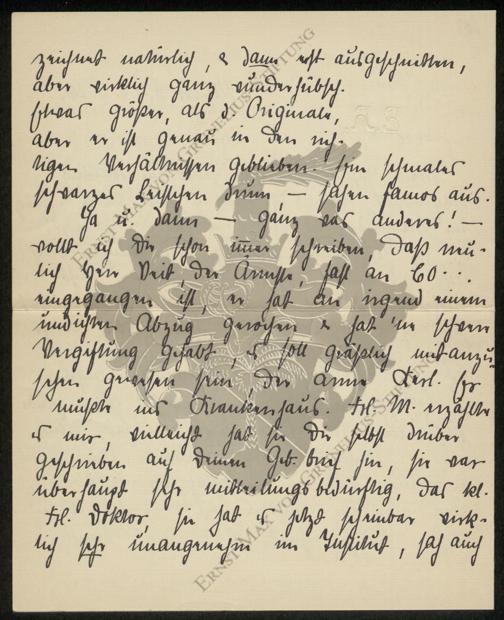 zeichnet natürlich, & dann erst ausgeschnitten,
aber wirklich ganz wunderhübsch.
Etwas größer, als d. Originale,
aber er ist genau in den rich-
tigen Verhältnissen geblieben. Ein schmales
schwarzes Leistchen drum, — sahen famos aus.
Ja u. dann — ganz was anderes! —
wollt ich dir schon immer schreiben, daß neu-
lich Herr Veit, der Ärmste, fast an CO...
eingegangen ist, er hat an irgend einem
undichten Abzug gerochen & hat 'ne schwere
Vergiftung gehabt, es soll gräßlich mitanzu-
sehen gewesen sein der arme Kerl. Er
mußte ins Krankenhaus. Frl. M. erzählte
es mir, vielleicht hat sie dir selbst drüber
geschrieben auf deinen Geb. brief hin, sie war
überhaupt sehr mitteilungsbedürftig, das kl.
Frl. Doktor, sie hat es jetzt scheinbar wirk-
lich sehr unangenehm im Institut, sah auch
ERNST MAX VON GRUNELIUS-STIFTUNG
ERNST MAX VON GRUNELIUS-STIFTUNG